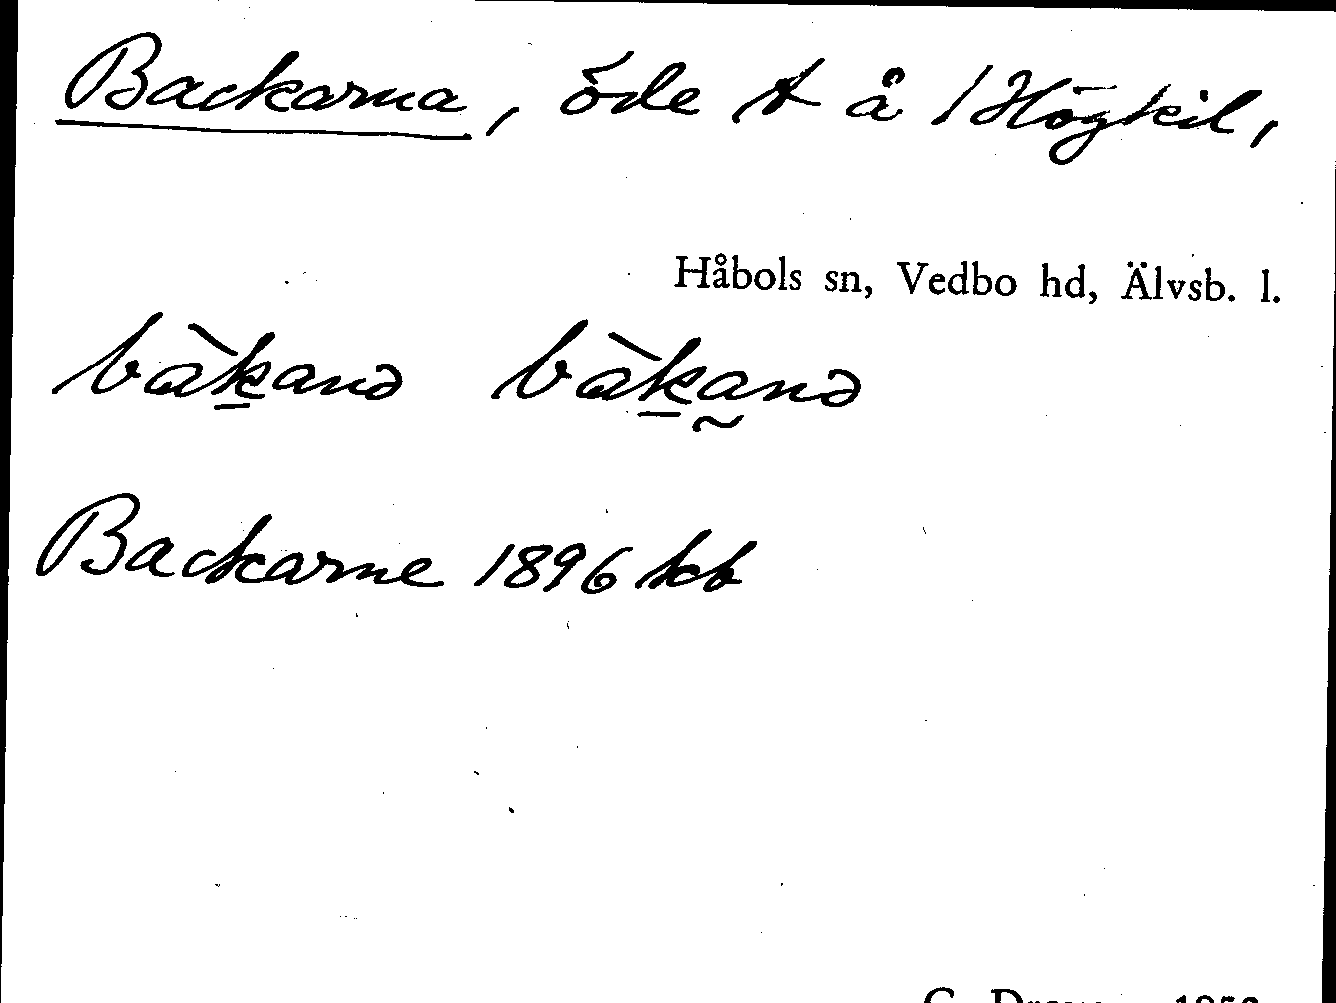 Backarna, öde t å 1 Högkil,
Håbols sn, Vedbo hd, Älvsb. l.
bàk̠anə bàk̠a̰nə
Backarne 1896 kb